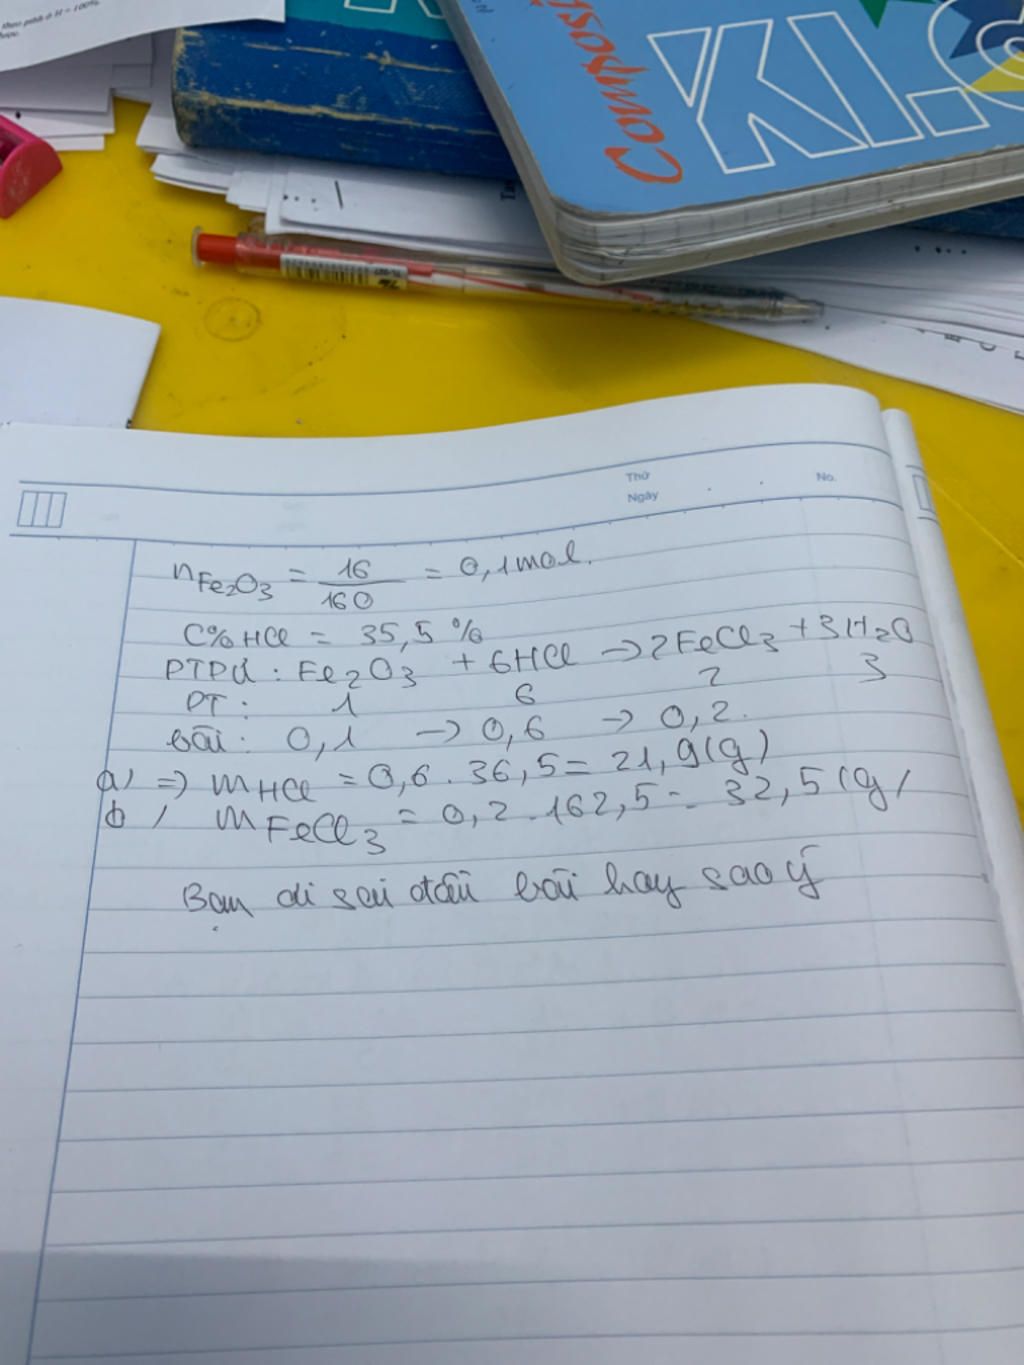 Compos
KLO
Thứ
Ngày
No.
nFe2O3 = 16/160 = 0,1 mol.
C% HCl = 35,5 %
PTPƯ: Fe2O3 + 6HCl → 2FeCl3 + 3H2O
PT: 1 6 2 3
bài: 0,1 → 0,6 → 0,2.
a) ⇒ mHCl = 0,6 . 36,5 = 21,9(g)
b) mFeCl3 = 0,2 . 162,5 = 32,5(g)
Bạn di sai đầu bài hay sao ý